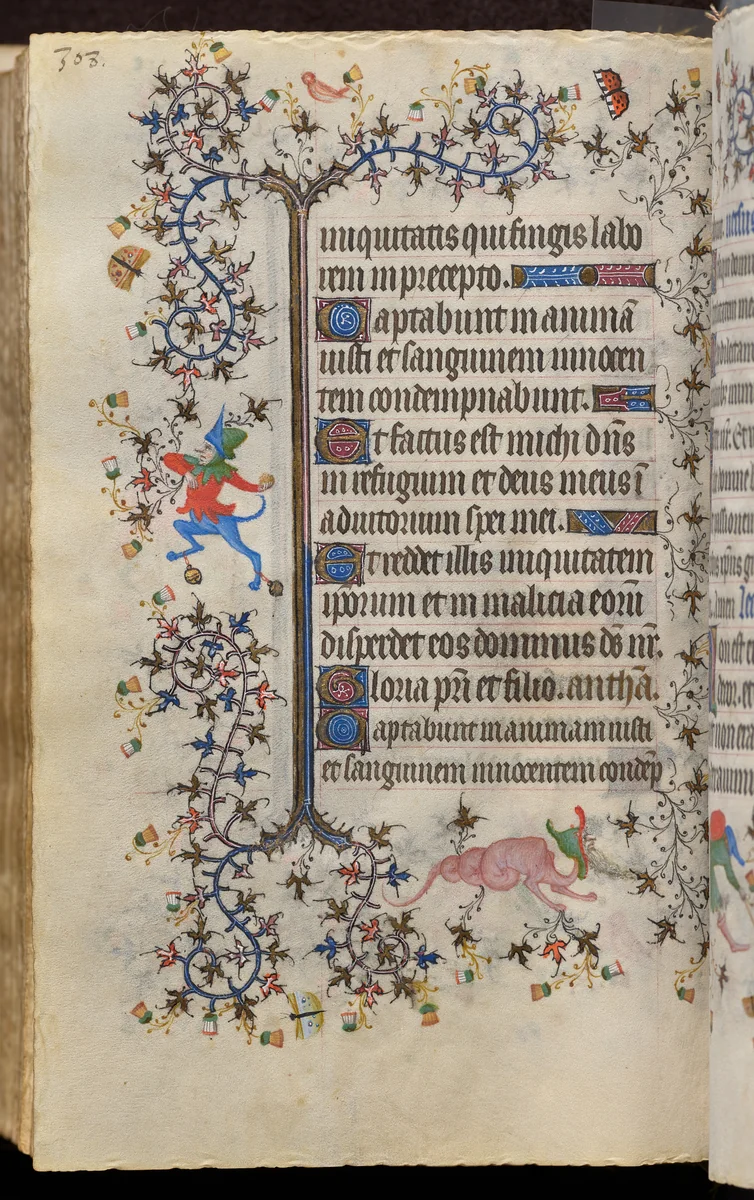 303.
iniquitatis qui fingis labo
rem in precepto.
Captabunt in animā
iusti et sanguinem innocen
tem condempnabunt.
Et factus est michi dn̄s
in refugium et deus meus ī
adiutorium spei mei.
Et reddet illis iniquitatem
ip̄orum et in malicia eorū
disperdet eos dominus ds̄ nr̄.
Gloria pr̄i et filio. anthā.
Captabunt in animam iusti
et sanguinem innocentem condēp